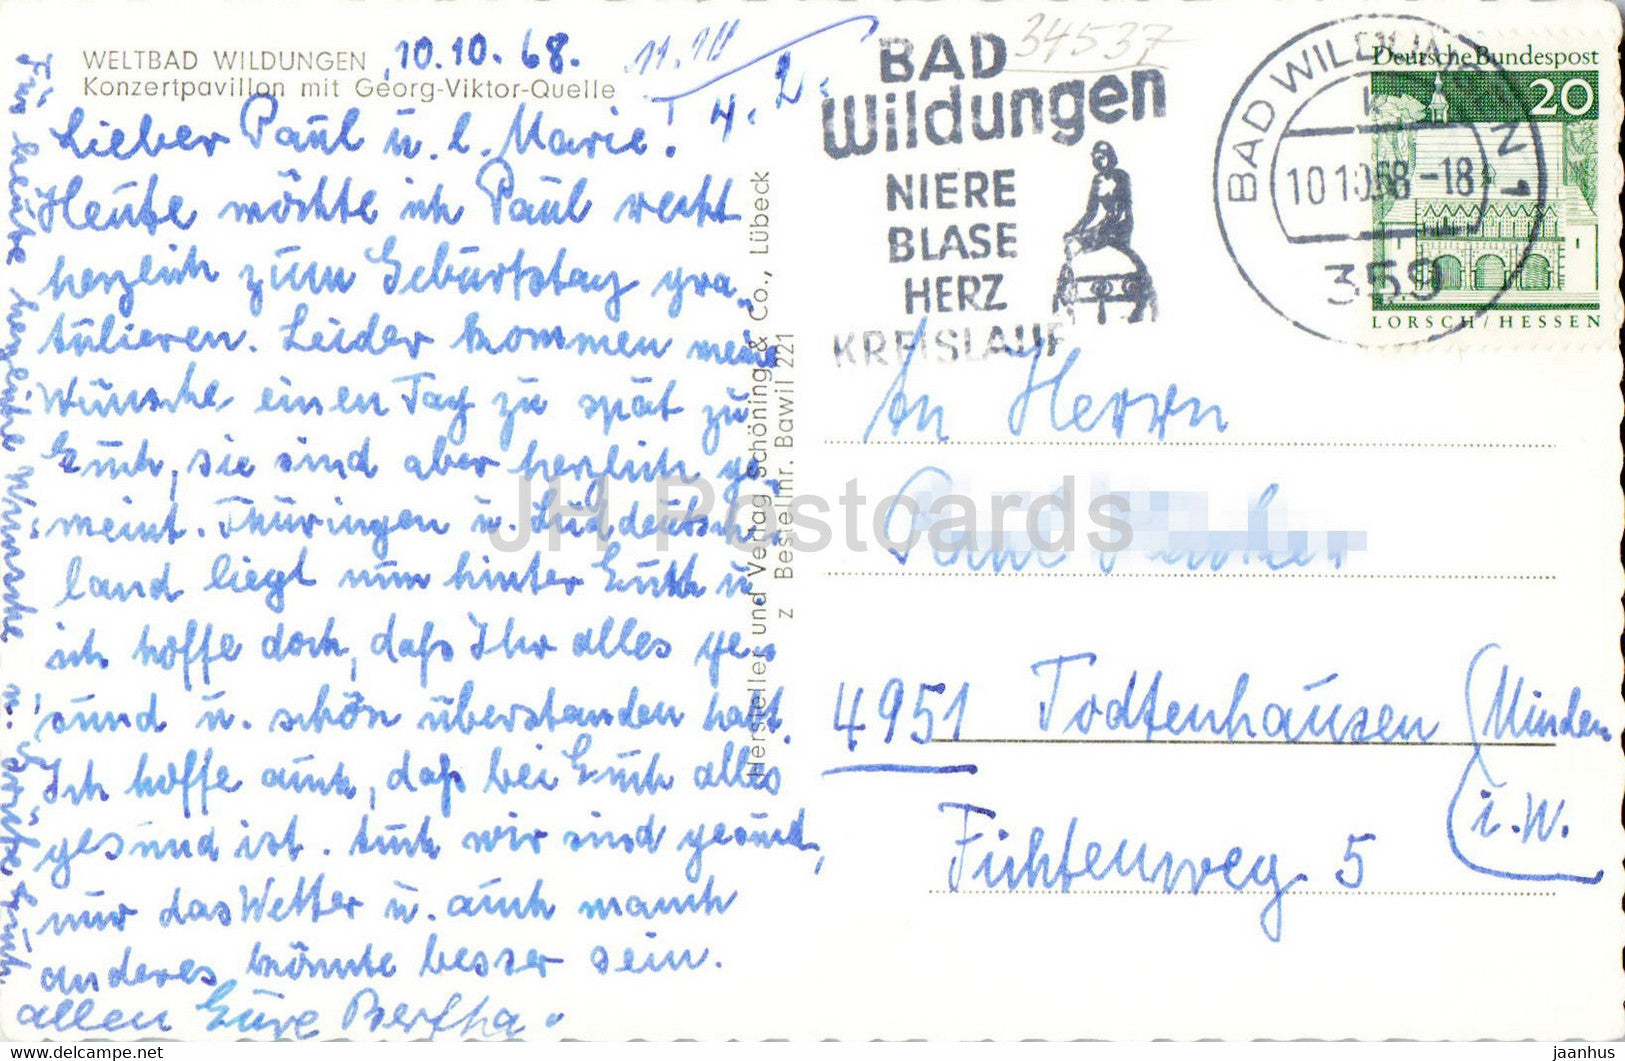 WELTBAD WILDUNGEN
Konzertpavillon mit Georg-Viktor-Quelle
10.10.68.
Lieber Paul u. l. Marie!
Heute möchte ich Paul recht
herzlich zum Geburtstag gra-
tulieren. Leider kommen meine
Wünsche einen Tag zu spät zu
Euch, sie sind aber herzlich ge-
meint. Thüringen u. Süddeutsch-
land liegt nun hinter Euch u.
ich hoffe doch, daß Ihr alles ge-
sund u. schön überstanden habt.
Ich hoffe auch, daß bei Euch alles
gesund ist. Auch wir sind gesund,
nur das Wetter u. auch manch
anderes könnte besser sein.
Für heute herzliche Wünsche u. Grüße Euch
allen Eure Bertha.
Hersteller und Verlag Schöning & Co., Lübeck
z Bestellnr. Bawil 221
34537
BAD
Wildungen
NIERE
BLASE
HERZ
KREISLAUF
BAD WILDUNGEN 1
10.10.68-18
359
Deutsche Bundespost
20
LORSCH/HESSEN
An Herrn
Paul
4951 Todtenhausen (Minden
i. W.
Fichtenweg 5
JH Postcards
jaanhus
https://www.delcampe.net